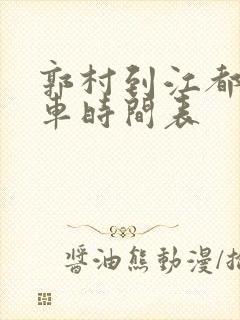 郭村到江都
車時間表
醬油熊動漫/